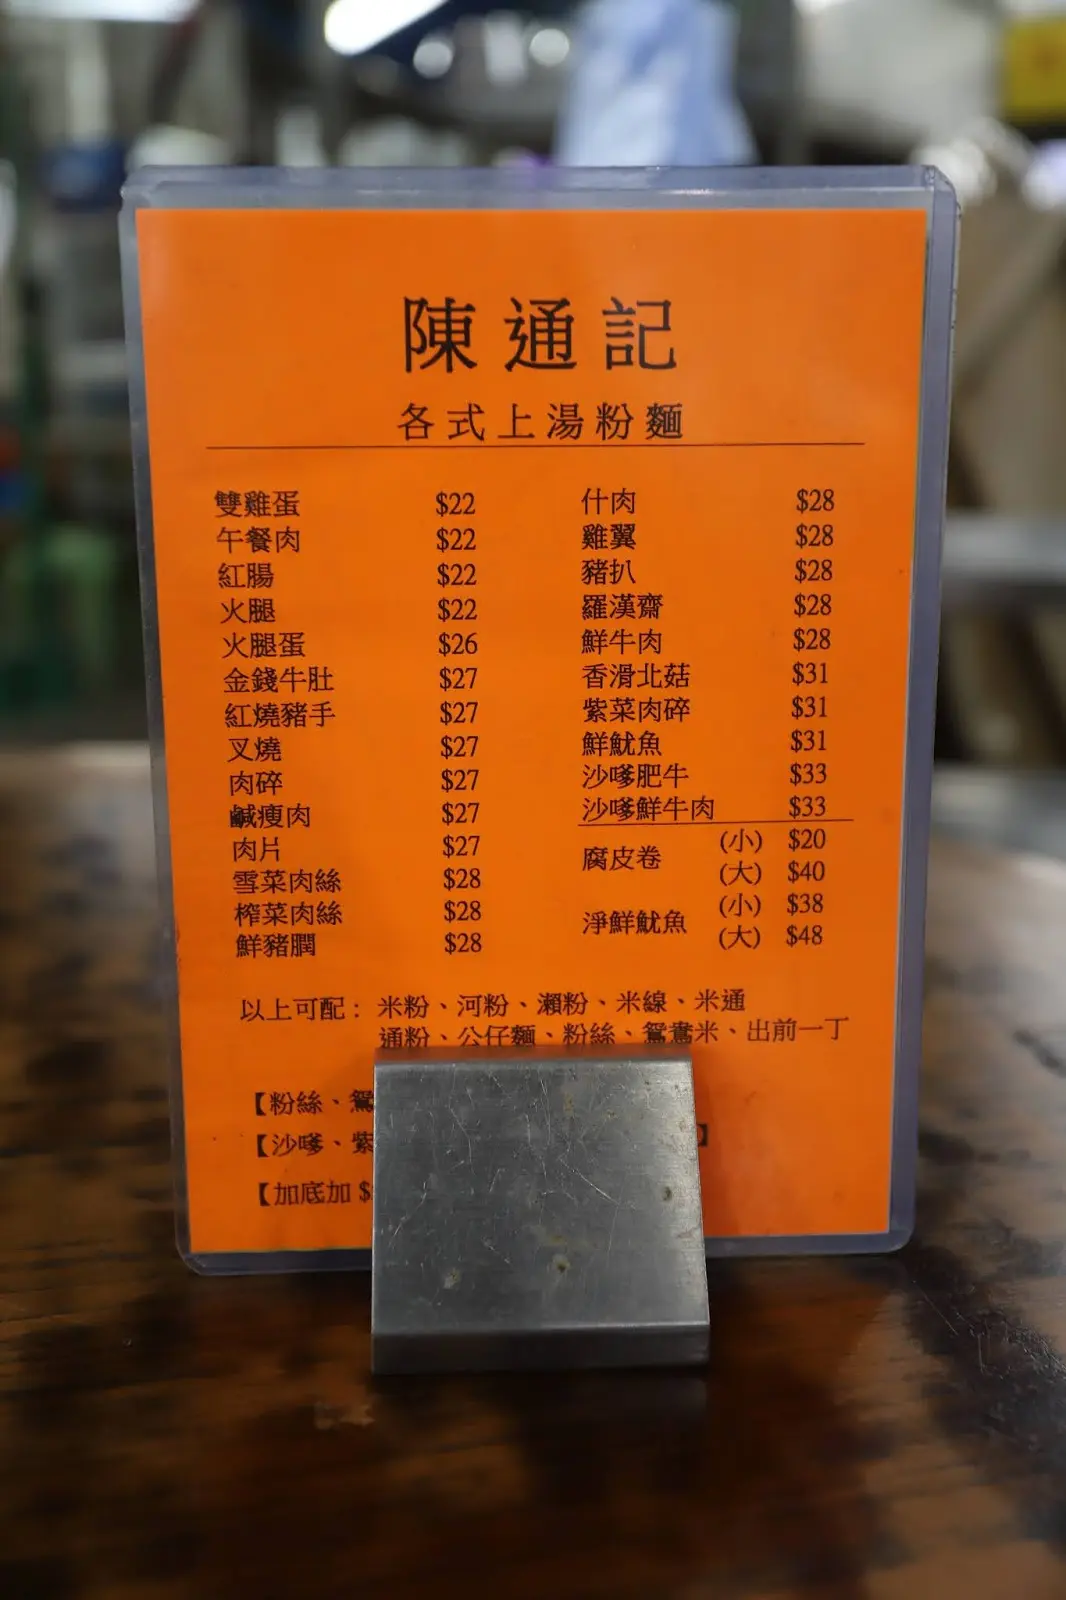 陳通記
各式上湯粉麵
雙雞蛋 $22
午餐肉 $22
紅腸 $22
火腿 $22
火腿蛋 $26
金錢牛肚 $27
紅燒豬手 $27
叉燒 $27
肉碎 $27
鹹瘦肉 $27
肉片 $27
雪菜肉絲 $28
榨菜肉絲 $28
鮮豬膶 $28
什肉 $28
雞翼 $28
豬扒 $28
羅漢齋 $28
鮮牛肉 $28
香滑北菇 $31
紫菜肉碎 $31
鮮魷魚 $31
沙嗲肥牛 $33
沙嗲鮮牛肉 $33
腐皮卷 (小) $20
(大) $40
淨鮮魷魚 (小) $38
(大) $48
以上可配：米粉、河粉、瀨粉、米線、米通
通粉、公仔麵、粉絲、鴛鴦米、出前一丁
【粉絲、鴛
【沙嗲、紫 】
【加底加 $